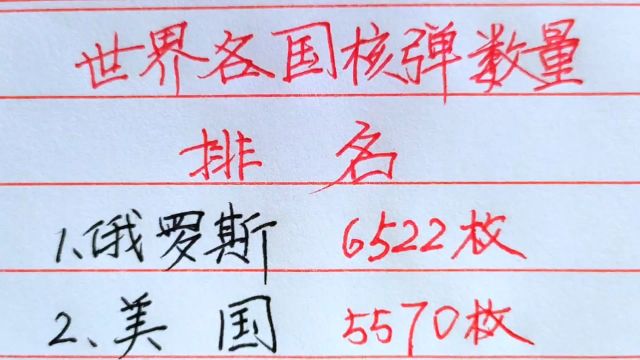 世界各国核弹数量
排名
1、俄罗斯 6522枚
2、美国 5570枚